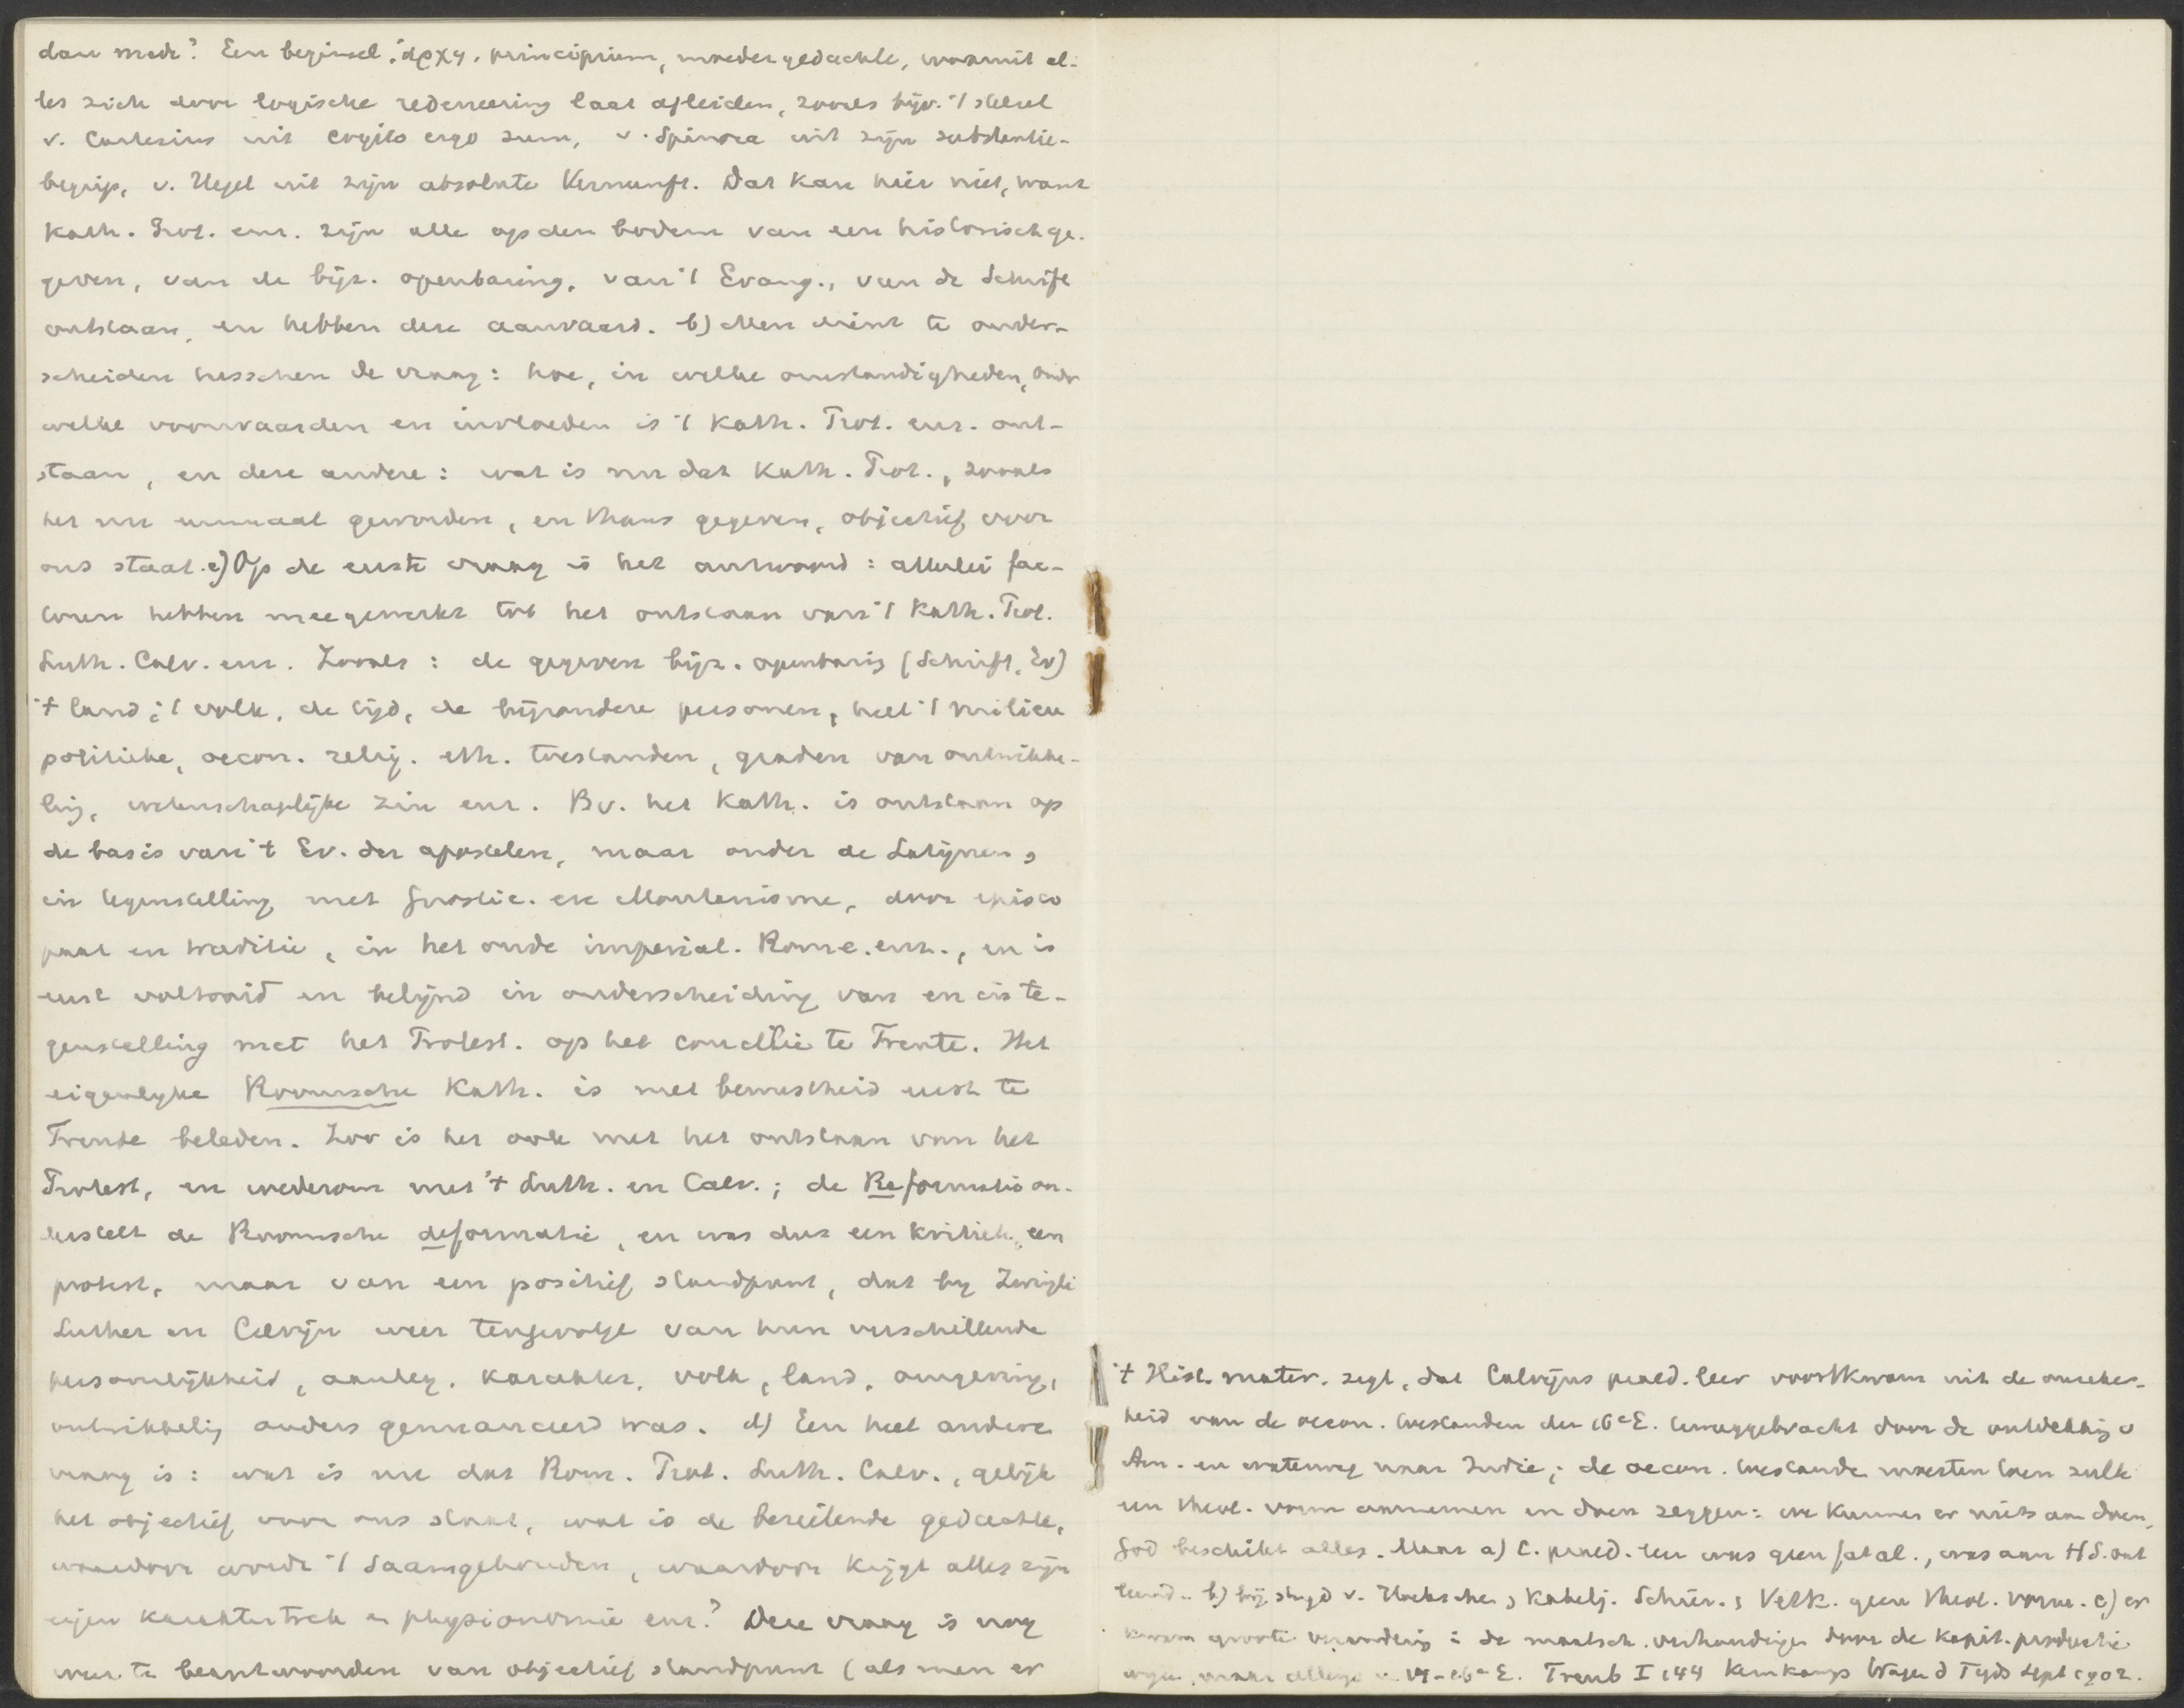 dan mede? Een beginsel, ἀρχη, principium, moedergedachte, waaruit al-
les zich door logische redeneering laat afleiden, zooals bijv. 't stelsel
v. Cartesius uit cogito ergo sum, v. Spinoza uit zijn substantie-
begrip, v. Hegel uit zijn absolute Vernunft. Dat kan hier niet, want
Kath. Prot. enz. zijn alle op den bodem van een historisch ge-
geven, van de bijz. openbaring, van 't Evang., van de Schrift
ontstaan, en hebben deze aanvaard. b) Men dient te onder-
scheiden tusschen de vraag: hoe, in welke omstandigheden, onder
welke voorwaarden en invloeden is 't Kath. Prot. enz. ont-
staan, en deze andere: wat is nu dat Kath. Prot., zooals
het nu eenmaal geworden, en thans gegeven, objectief voor
ons staat. c) Op de eerste vraag is het antwoord: allerlei fac-
toren hebben meegewerkt tot het ontstaan van 't Kath. Prot.
Luth. Calv. enz. Zooals: de gegeven bijz. openbaring (Schrift, Ev)
't land, 't volk, de tijd, de bijzondere personen, heel 't milieu
politieke, oecon. relig. eth. toestanden, graden van ontwikke-
ling, wetenschaplijke zin enz. Bv. het Kath. is ontstaan op
de basis van 't Ev. der apostelen, maar onder de Latijnen,
in tegenstelling met Gnostic. en Montanisme, door episco
paat en traditie, in het oude imperial. Rome. enz., en is
eerst voltooid en belijnd in onderscheiding van en in te-
genstelling met het Protest. op het concilie te Trente. Het
eigenlyke Roomsche Kath. is met bewustheid eerst te
Trente beleden. Zoo is het ook met het ontstaan van het
Protest, en wederom met 't Luth. en Calv.; de Reformatio on-
derstelt de Roomsche deformatie, en was dus een kritiek, een
protest, maar van een positief standpunt, dat by Zwingli
Luther en Calvijn weer tengevolge van hun verschillende
persoonlijkheid, aanleg, karakter, volk, land, omgeving,
ontwikkeling anders genuanceerd was. d) Een heel andere
vraag is: wat is nu dat Rom. Prot. Luth. Calv., gelijk
het objectief voor ons staat, wat is de bezielende gedachte,
waardoor wordt 't saamgehouden, waardoor krijgt alles zijn
eigen karaktertrek en physionomie enz? Deze vraag is nog
weer te beantwoorden van objectief standpunt (als men er
't Hist. mater. zegt, dat Calvijns praed. leer voortkwam uit de onzeker-
heid van de oecon. toestanden der 16e E. teruggebracht door de ontdekking v
Am. en waterweg naar Indie; de oecon. toestanden moesten toen zulk
een theol. vorm aannemen en doen zeggen: we kunnen er niets aan doen,
God beschikt alles. Maar a) C. praed. leer was geen fatal., was aan HS. ont
leend. b) bij strijd v. Hoeksche, Kabelj. Schier., Vetk. geen theol. vorm. c) er
kwam groote verandering in de maatsch. verhoudingen door de kapit. productie
wijze, maar in 16e E. Treub I 144 Kernkamp Vragen d Tijds Sept 1902.